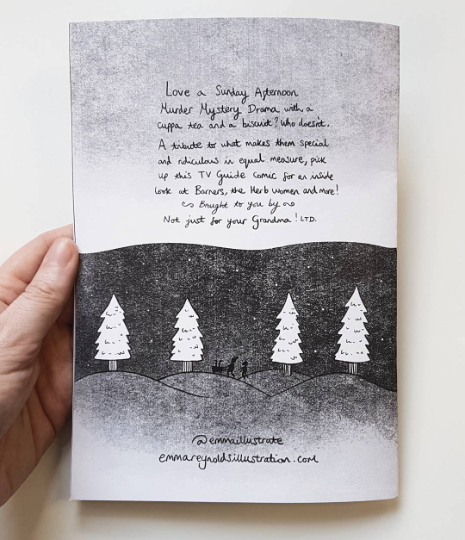 Love a Sunday Afternoon
Murder Mystery Drama with a
cuppa tea and a biscuit? Who doesn't.
A tribute to what makes them special
and ridiculous in equal measure, pick
up this TV Guide comic for an inside
look at Barners, the Herb women and more!
Brought to you by
Not just for your Grandma! LTD.
@emmaillustrate
emmareynoldsillustration.com